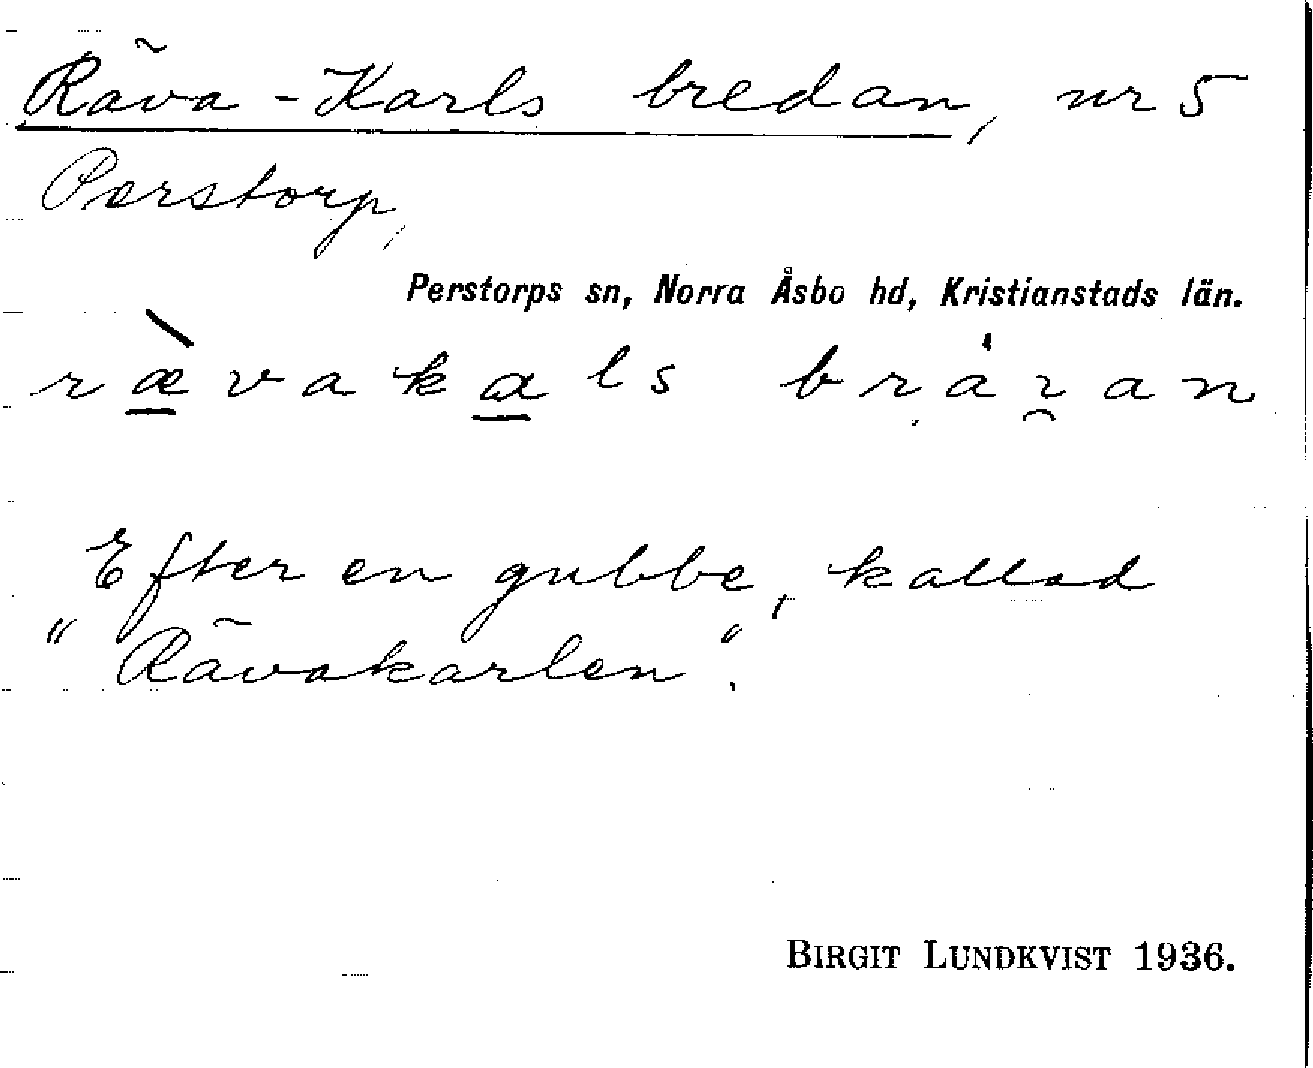 Räva-Karls bredan, nr 5
Perstorp,
Perstorps sn, Norra Åsbo hd, Kristianstads län.
Efter en gubbe, kallad
"Rävakarlen".
BIRGIT LUNDKVIST 1936.